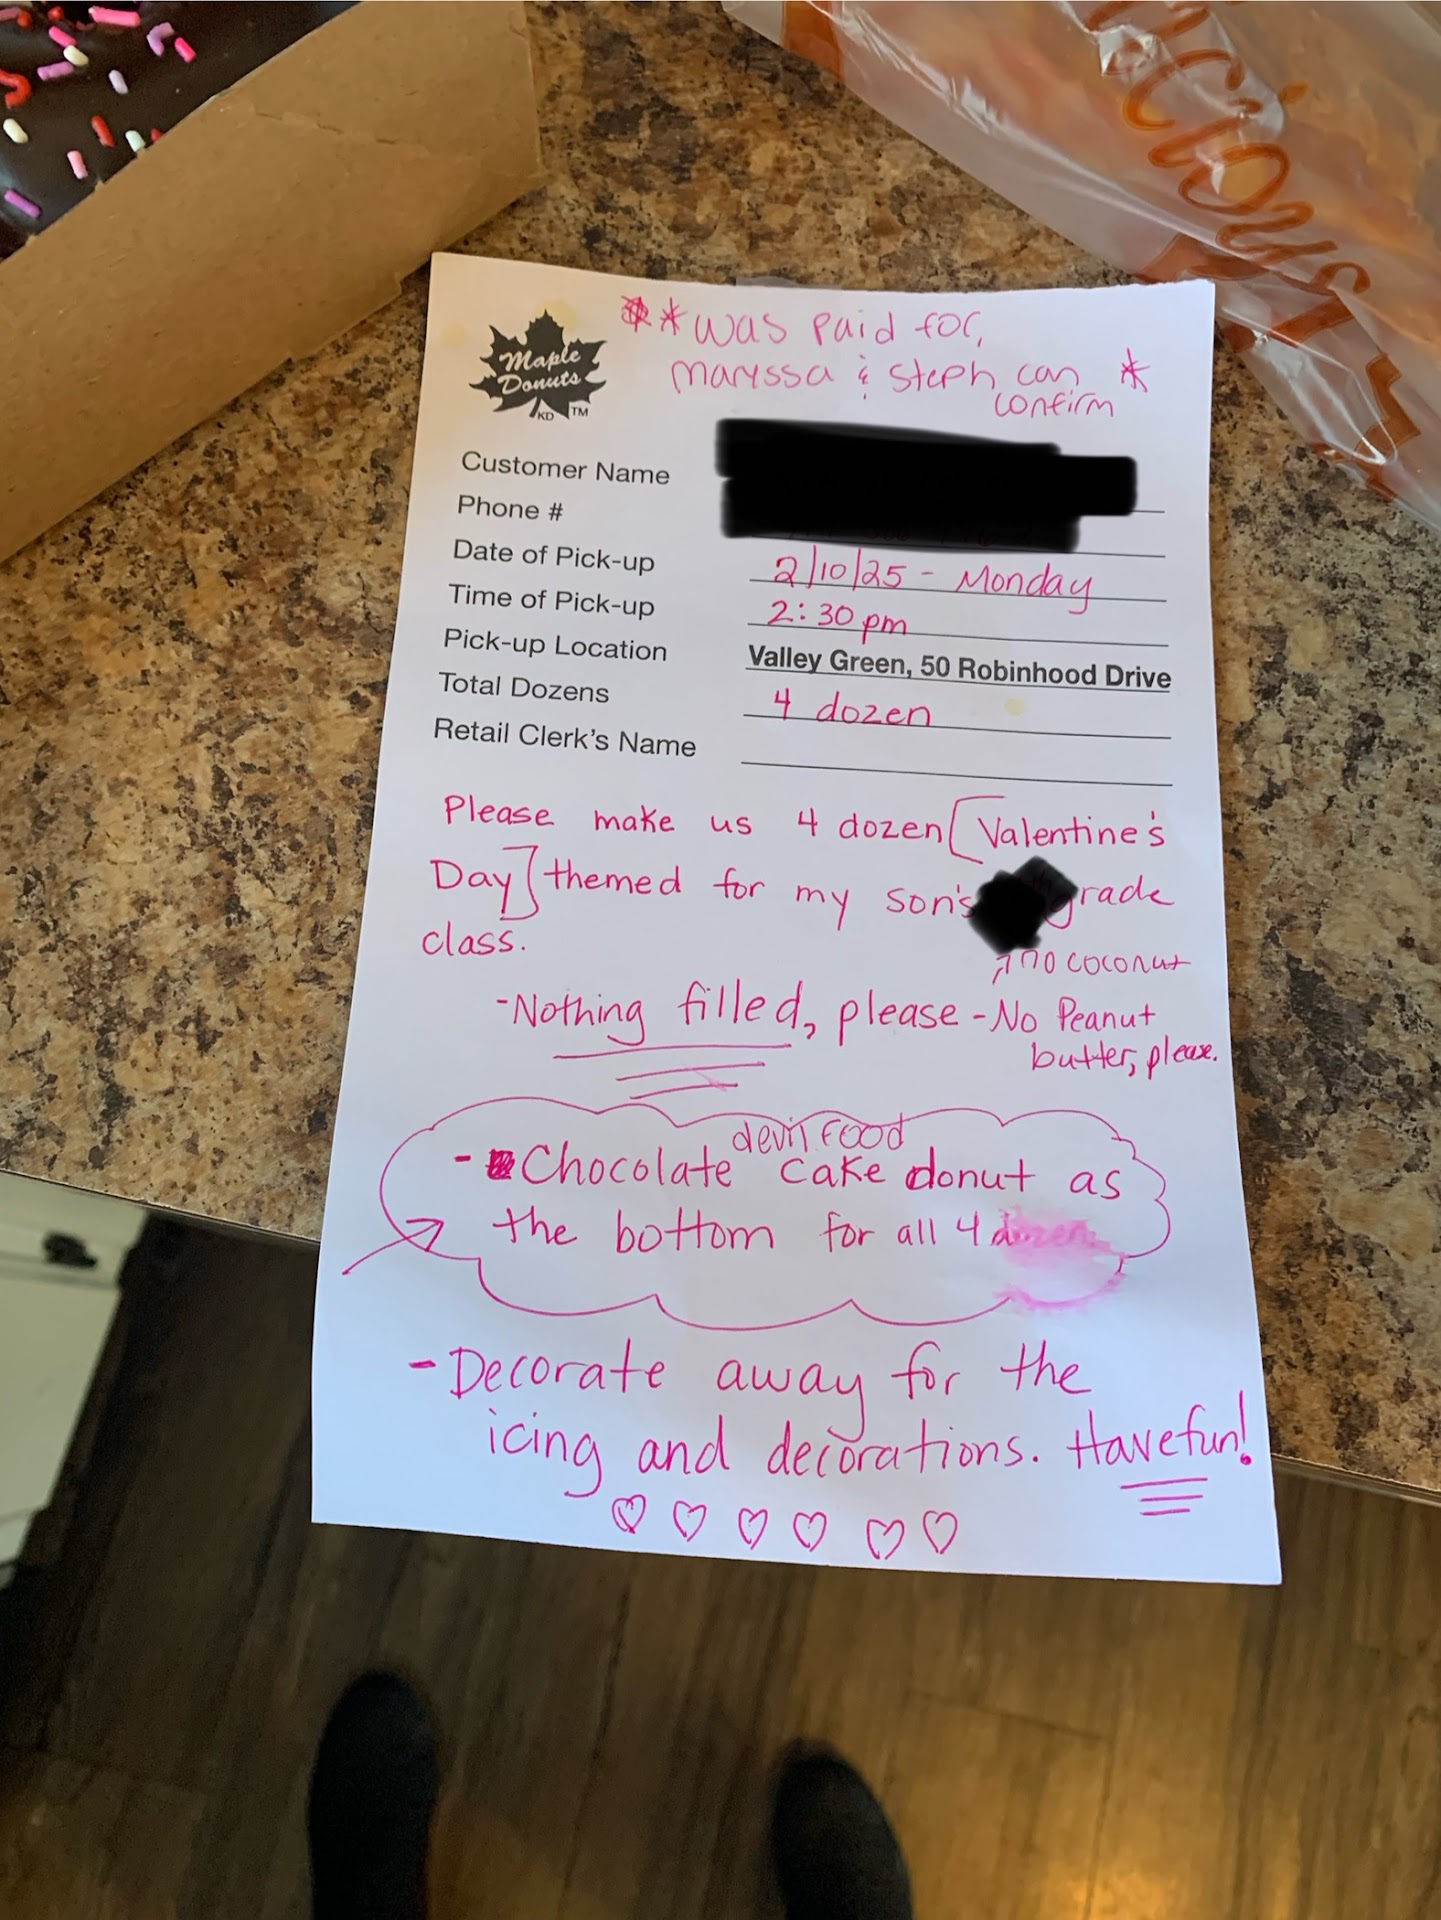 icious
Maple
Donuts
KD TM
* * was paid for,
maryssa & steph can *
confirm
Customer Name
Phone #
Date of Pick-up 2/10/25 - Monday
Time of Pick-up 2:30 pm
Pick-up Location Valley Green, 50 Robinhood Drive
Total Dozens 4 dozen
Retail Clerk's Name
Please make us 4 dozen [Valentine's
Day] themed for my son's grade
class.
, no coconut
- Nothing filled, please - No Peanut
butter, please.
devil FOOD
- Chocolate cake donut as
the bottom for all 4 dozen
- Decorate away for the
icing and decorations. Have fun!